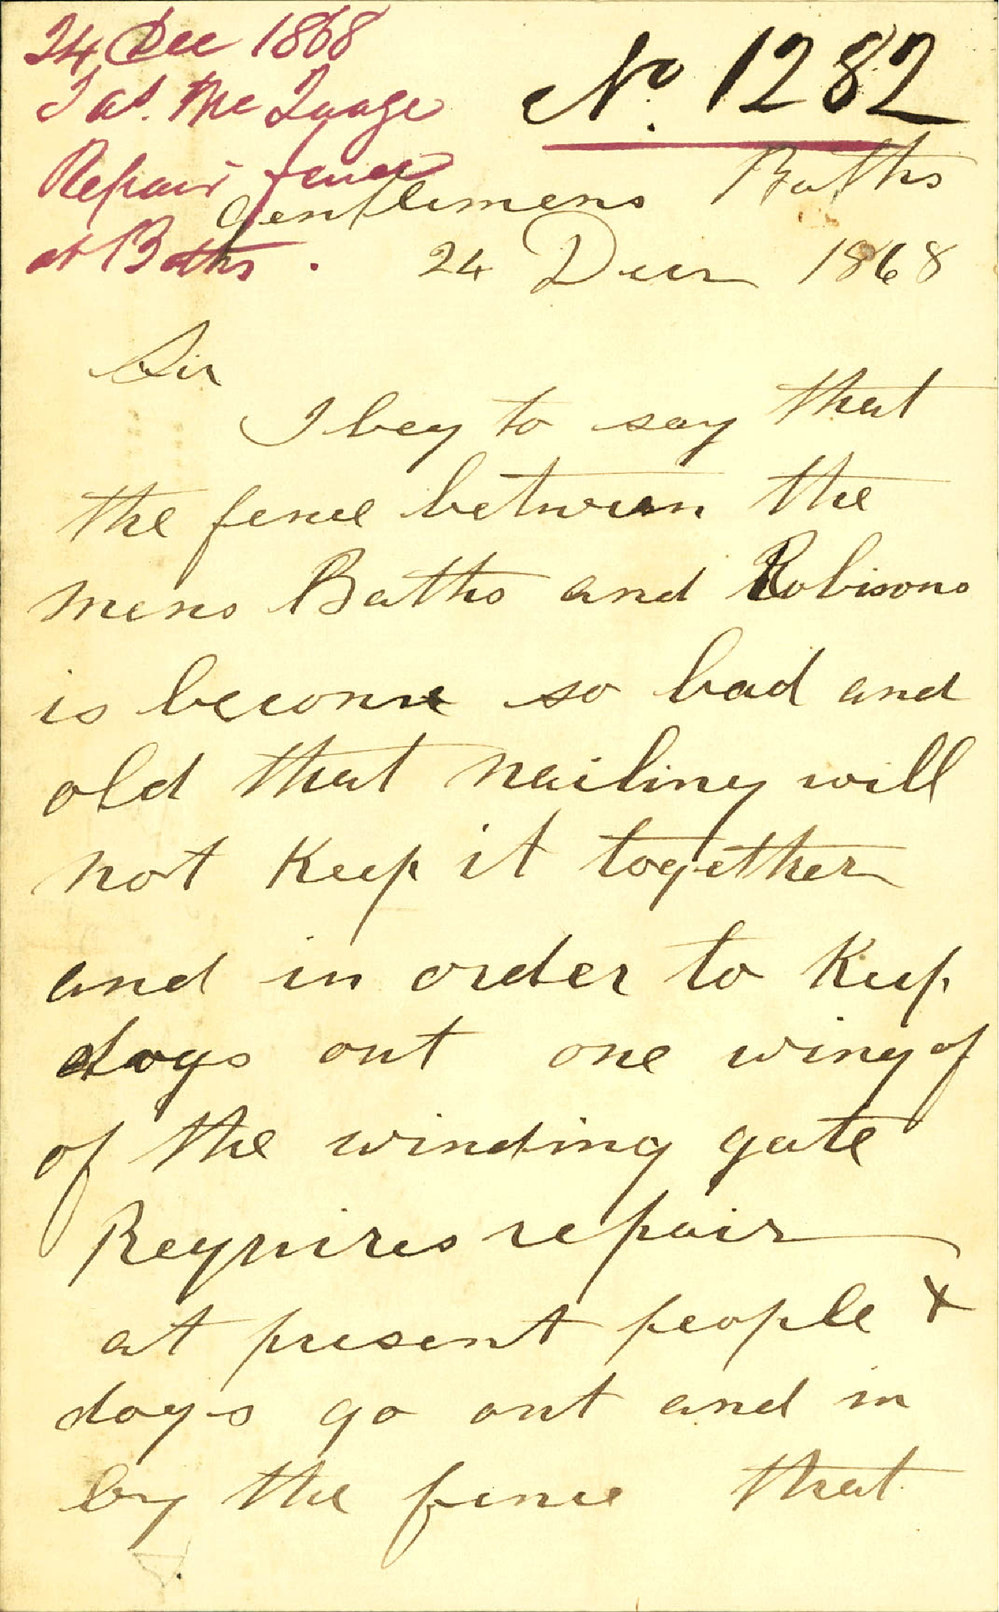 24 Dec 1868
Jas. Mc
Repair fence
at Baths.
No. 1282
Gentlemens Baths
24 Decr 1868
Sir
I beg to say that
the fence between the
mens Baths and Robisons
is become so bad and
old that nailing will
not Keep it together
and in order to Keep
dogs out one wing of
of the winding gate
Requires repair
at present people &
dogs go out and in
by the fence that